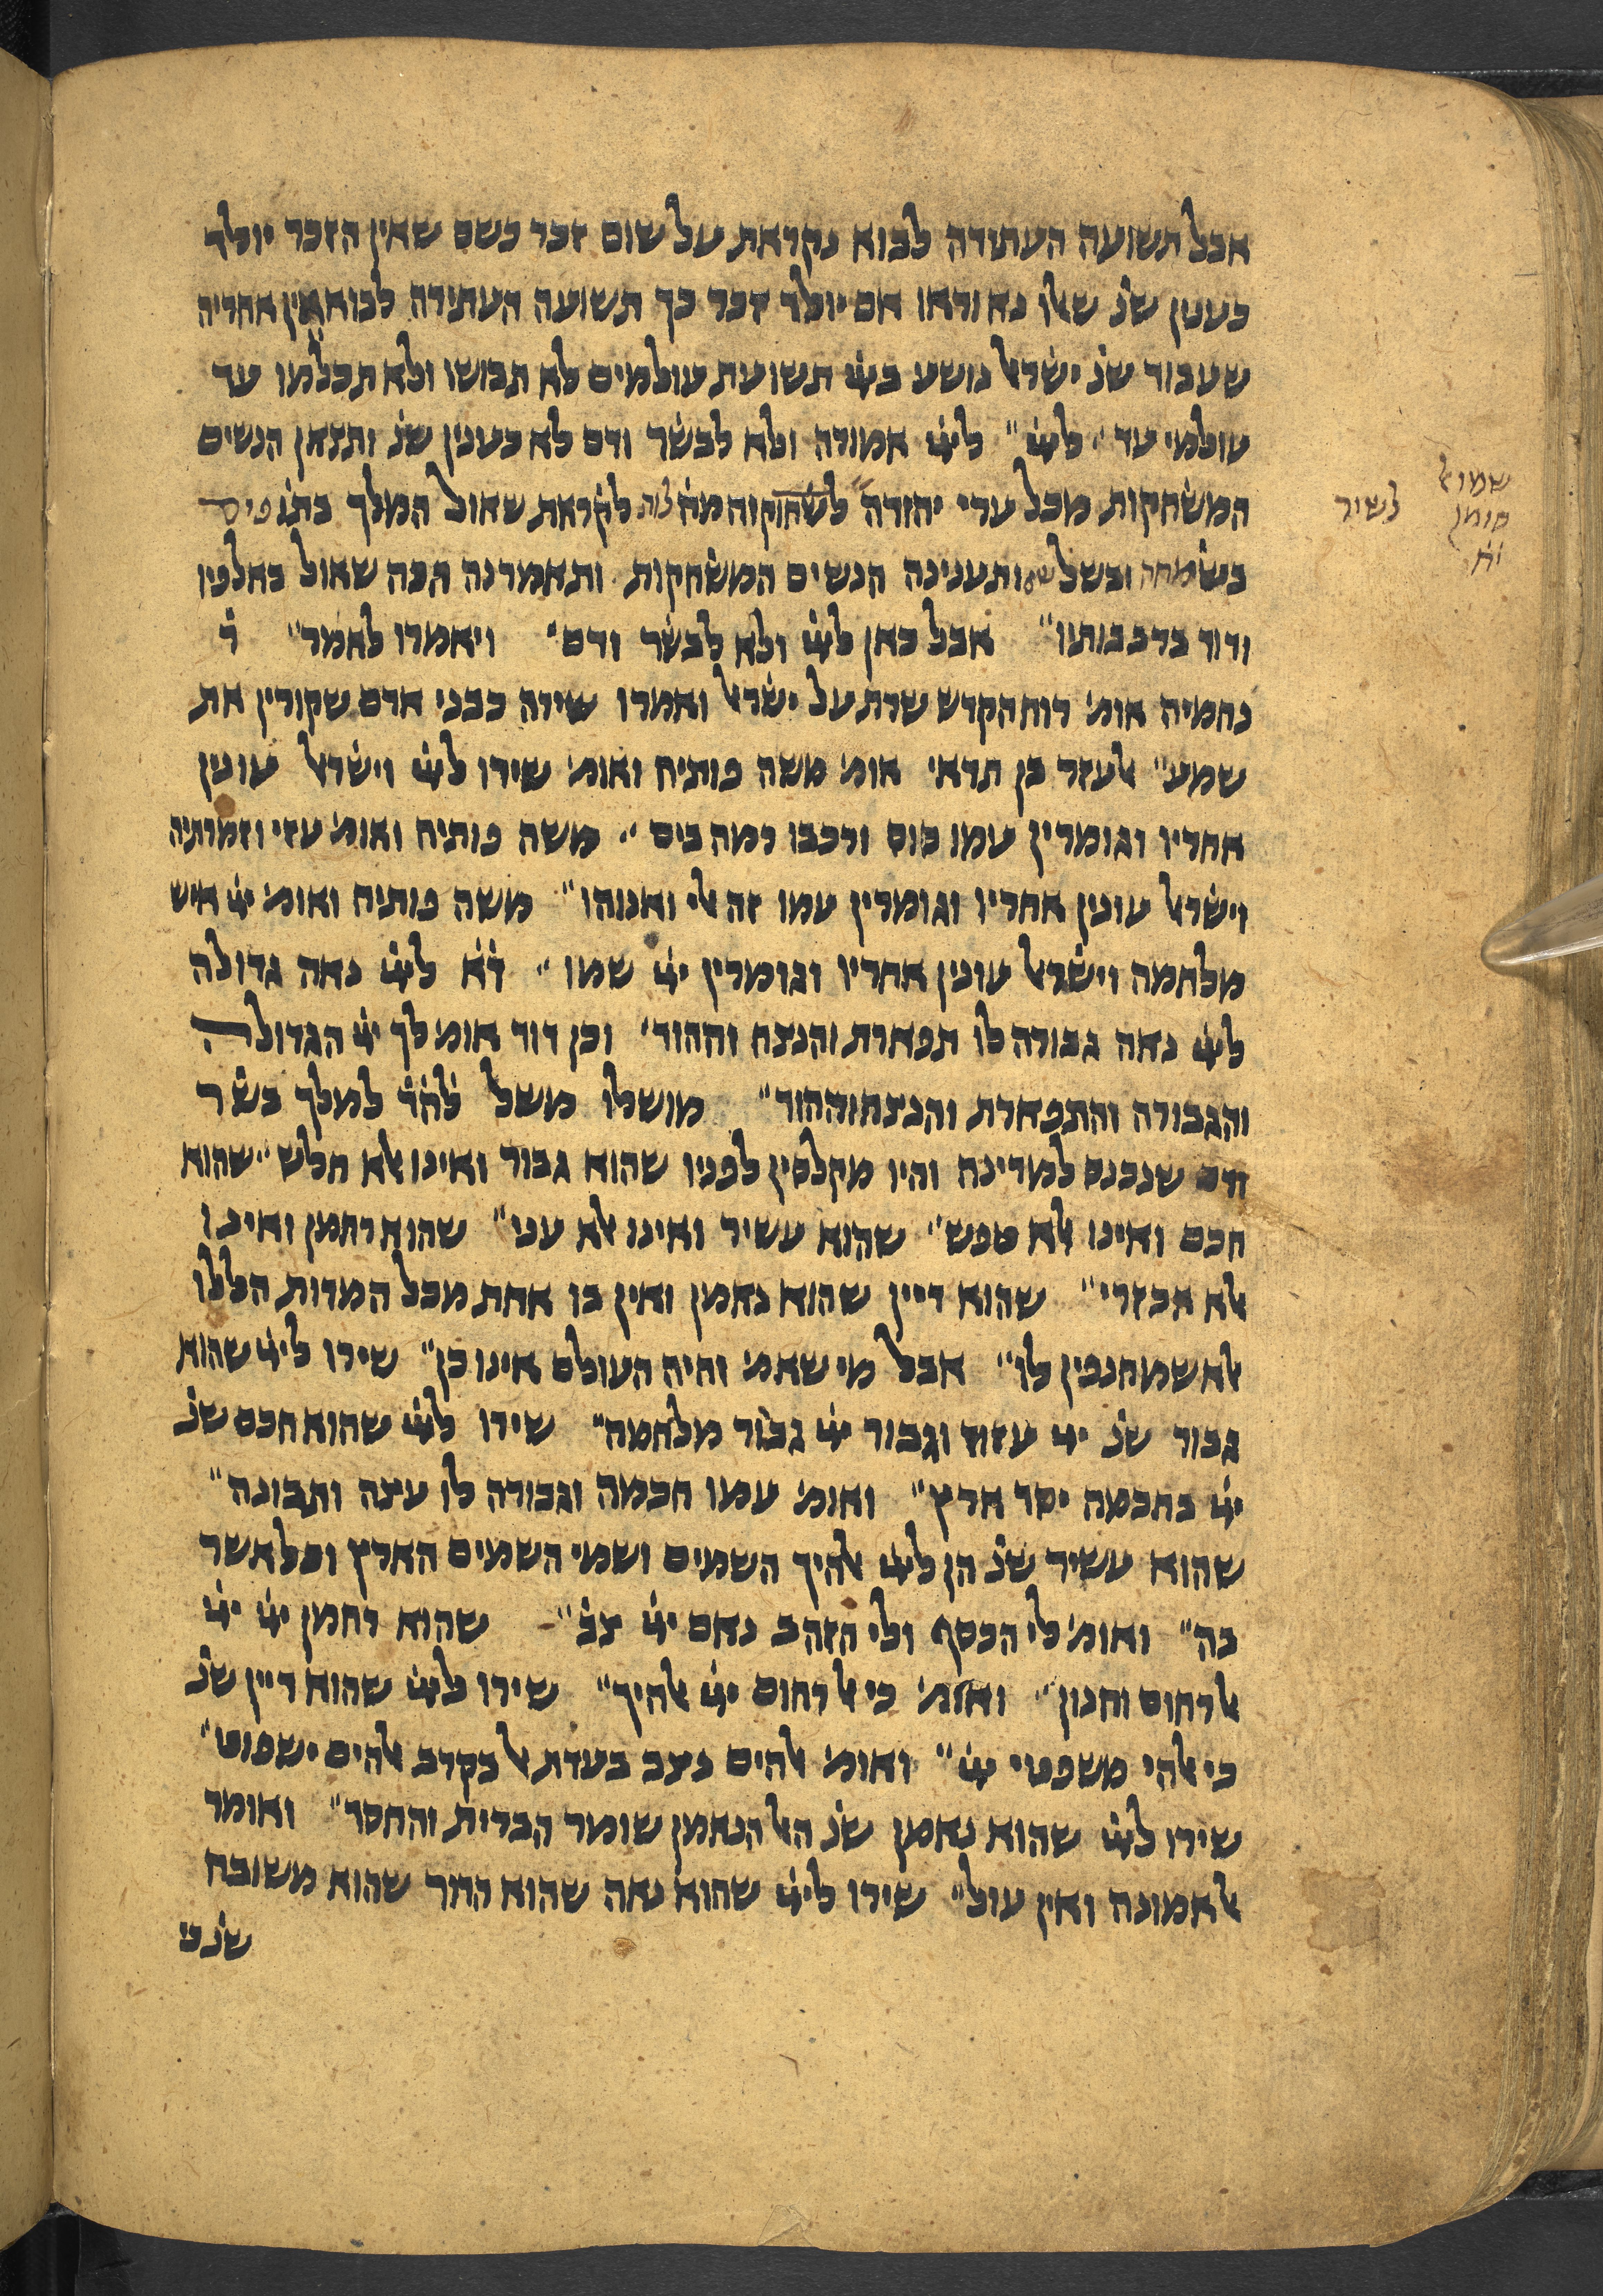 אבל תשועה העתידה לבוא נקראת על שום זכר כשם שאין הזכר יולד
כענין שנ׳ שאלו נא וראו אם יולד זכר כך תשועה העתידה לבוא אין אחריה
שעבוד שנ׳ ישראל נושע ביי תשועת עולמים לא תבושו ולא תכלמו עד
עולמי עד ״ ליי ״ ליי אמורה ולא לבשר ודם לא כענין שנ׳ ותצאן הנשים
המשחקות מכל ערי יהודה לשחוק והמחולות לקראת שאול המלך בתופים
בשמחה ובשלשים ותענינה הנשים המשחקות ותאמרנה הכה שאול באלפיו
ודוד ברבבותיו ״ אבל כאן ליי ולא לבשר ודם ׳ ויאמרו לאמר ״ ר׳
נחמיה אומ׳ רוח הקדש שרת על ישראל ואמרו שירה כבני אדם שקורין את
שמע ״ אלעזר בן תדאי אומ׳ משה פותיח ואומ׳ שירו ליי וישראל עונין
אחריו וגומרין עמו סוס ורכבו רמה בים ״ משה פותיח ואומ׳ עזי וזמרת יה
וישראל עונין אחריו וגומרין עמו זה אלי ואנוהו ״ משה פותיח ואומ׳ יי איש
מלחמה וישראל עונין אחריו וגומרין יי שמו ״ ד׳א׳ ליי נאה גדולה
ליי נאה גבורה לו תפארת והנצח וההוד ׳ וכן דוד אומ׳ לך יי הגדולה
והגבורה והתפארת והנצח וההוד ״ מושלו משל למה׳ד׳ למלך בשר
ודם שנכנס למדינה והיו מקלסין לפניו שהוא גבור ואינו אלא חלש ״ שהוא
חכם ואינו אלא טפש ״ שהוא עשיר ואינו אלא עני ״ שהוא רחמן ואינו
אלא אכזרי ״ שהוא דיין שהוא נאמן ואין בו אחת מכל המדות הללו
אלא שמחנפין לו ״ אבל מי שאמ׳ והיה העולם אינו כן ״ שירו ליי שהוא
גבור שנ׳ יי עזוז וגבור יי גבור מלחמה ״ שירו ליי שהוא חכם שנ׳
יי בחכמה יסד ארץ ״ ואומ׳ עמו חכמה וגבורה לו עצה ותבונה ״
שהוא עשיר שנ׳ הן ליי אלהיך השמים ושמי השמים הארץ וכל אשר
בה ״ ואומ׳ לי הכסף ולי הזהב נאם יי צב׳ ״ שהוא רחמן יי יי
אל רחום וחנון ״ ואומ׳ כי אל רחום יי אלהיך ״ שירו ליי שהוא דיין שנ׳
כי אלהי משפטי יי ״ ואומ׳ אלהים נצב בעדת אל בקרב אלהים ישפוט ״
שירו ליי שהוא נאמן שנ׳ האל הנאמן שומר הברית והחסד ״ ואומר
אל אמונה ואין עול ״ שירו ליי שהוא נאה שהוא הדר שהוא משובח
שנ׳ מי
שמואל
סומן לשיר
יח